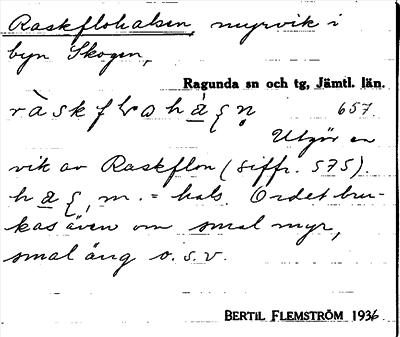 Raskflohalsen, myrvik i
byn Skogen,
Ragunda sn och tg, Jämtl. län.
657.
Utgör en
vik av Raskflon (siffr. 575).
m. = hals. Ordet bru-
kas även om smal myr,
smal äng o. s. v.
BERTIL FLEMSTRÖM 1936